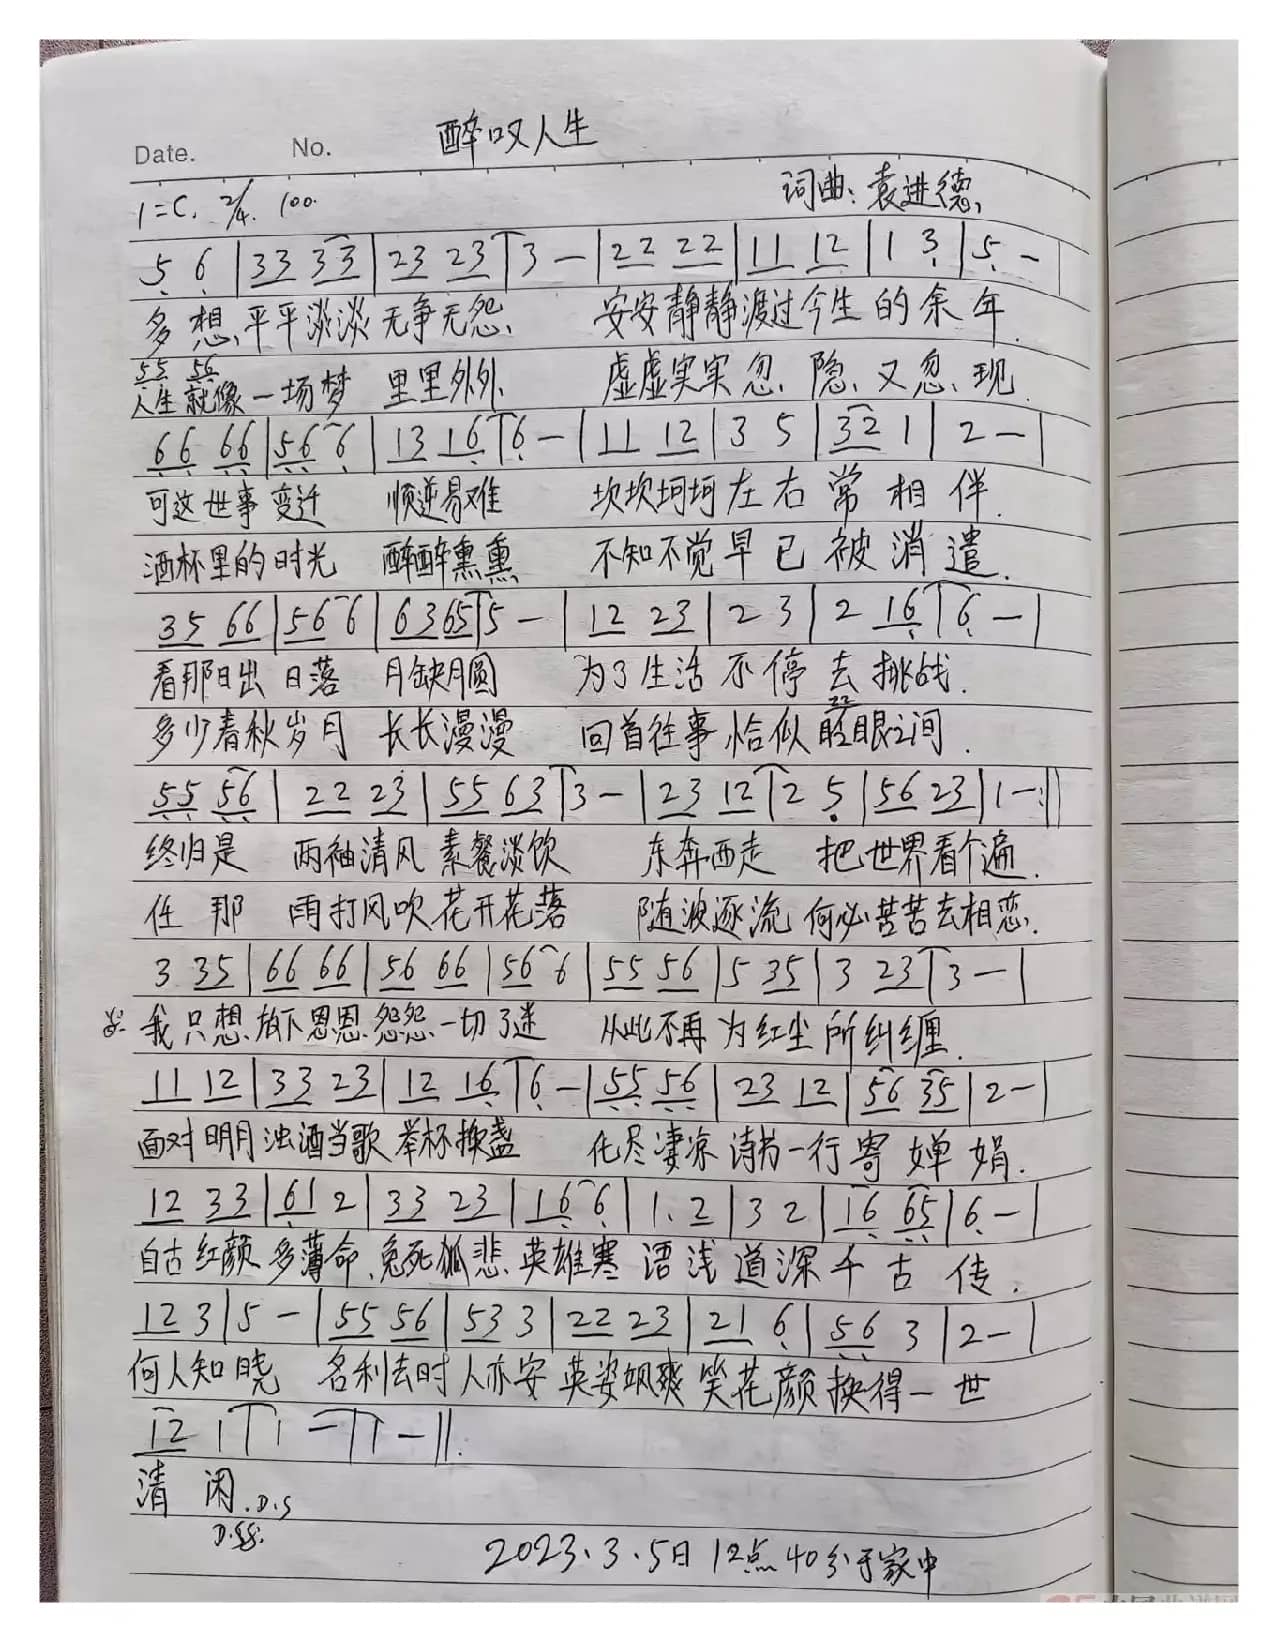 醉叹人生
Date. No.
词曲:袁进德
1=C. 2/4. 100.
5 6 | 33 33 | 23 23 | 3 — | 22 22 | 11 12 | 1 3 | 5 - |
多想、平平淡淡 无争无怨、 安安静静渡过今生的余年.
55 56
人生就像一场梦 里里外外、 虚虚实实忽、隐、又忽、现.
66 66 | 56 6 | 13 16 | 6 — | 11 12 | 3 5 | 32 1 | 2 — |
可这世事变迁 顺逆易难 坎坎坷坷左右常相伴.
酒杯里的时光 醉醉熏熏 不知不觉早已被消遣.
35 66 | 56 6 | 6365 | 5 — | 12 23 | 2 3 | 2 16 | 6 — |
看那日出日落 月缺月圆 为了生活不停去挑战.
22
多少春秋岁月 长长漫漫 回首往事恰似眨眼之间.
55 56 | 22 23 | 55 63 | 3 — | 23 12 | 2 5 | 56 23 | 1 — :||
终归是 两袖清风素餐淡饮 东奔西走 把世界看个遍.
任那 雨打风吹花开花落 随波逐流 何必苦苦去相恋.
3 35 | 66 66 | 56 66 | 56 6 | 55 56 | 5 35 | 3 23 | 3 — |
我只想、放下恩恩怨怨一切了迷 从此不再为红尘所纠缠.
11 12 | 33 23 | 12 16 | 6 — | 55 56 | 23 12 | 56 35 | 2 — |
面对明月浊酒当歌举杯换盏 化尽凄凉诗书一行寄婵娟.
12 33 | 61 2 | 33 23 | 16 6 | 1. 2 | 3 2 | 16 65 | 6 — |
自古红颜多薄命、兔死狐悲、英雄寒 语浅道深千古传.
12 3 | 5 - | 55 56 | 53 3 | 22 23 | 21 6 | 56 3 | 2 — |
何人知晓 名利去时人亦安 英姿飒爽笑花颜换得一世
12 1 | 1 — | 1 — ||.
清闲. D.S
2023.3.5日12点40分于家中